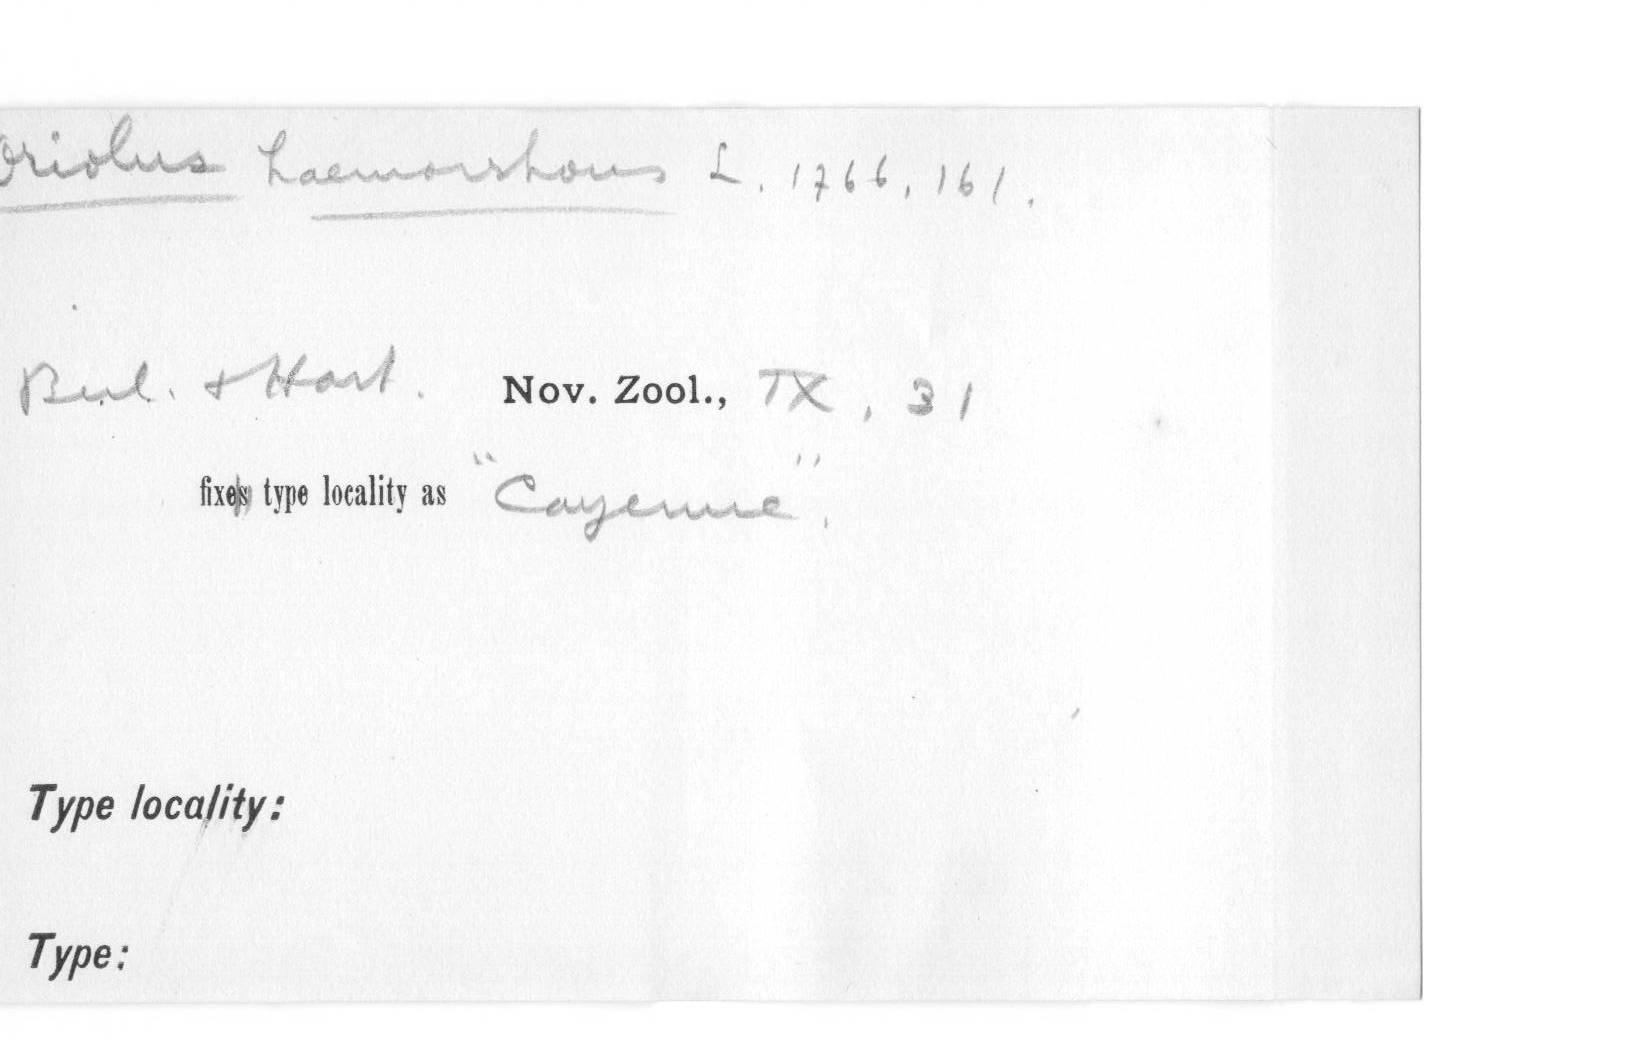 Oriolus haemorrhous L. 1766, 161.
Berl. & Hart. Nov. Zool., IX, 31
fixes type locality as "Cayenne".
Type locality:
Type: